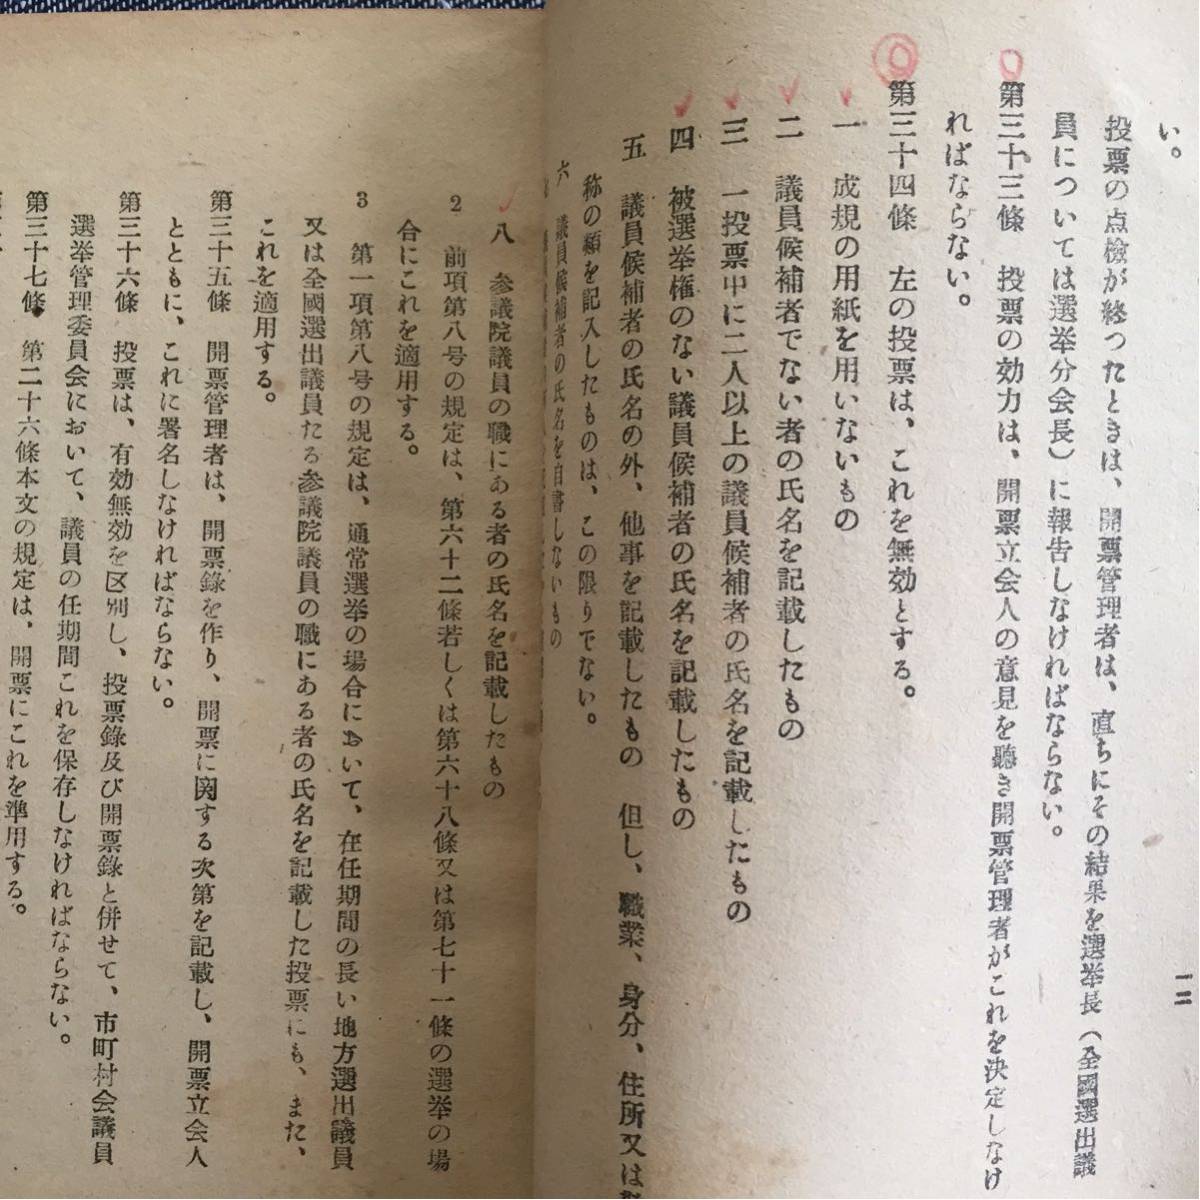 い。
投票の点檢が終つたときは、開票管理者は、直ちにその結果を選挙長(全國選出議
員については選挙分会長)に報告しなければならない。
第三十三條　投票の効力は、開票立会人の意見を聽き開票管理者がこれを決定しなけ
ればならない。
第三十四條　左の投票は、これを無効とする。
一　成規の用紙を用いないもの
二　議員候補者でない者の氏名を記載したもの
三　一投票中に二人以上の議員候補者の氏名を記載したもの
四　被選挙権のない議員候補者の氏名を記載したもの
五　議員候補者の氏名の外、他事を記載したもの　但し、職業、身分、住所又は
称の類を記入したものは、この限りでない。
六　議員候補者の氏名を自書しないもの
一二
八　参議院議員の職にある者の氏名を記載したもの
2　前項第八号の規定は、第六十二條若しくは第六十八條又は第七十一條の選挙の場
合にこれを適用する。
3　第一項第八号の規定は、通常選挙の場合において、在任期間の長い地方選出議員
又は全國選出議員たる参議院議員の職にある者の氏名を記載した投票にも、また、
これを適用する。
第三十五條　開票管理者は、開票錄を作り、開票に関する次第を記載し、開票立会人
とともに、これに署名しなければならない。
第三十六條　投票は、有効無効を区別し、投票錄及び開票錄と併せて、市町村会議員
選挙管理委員会において、議員の任期間これを保存しなければならない。
第三十七條　第二十六條本文の規定は、開票にこれを準用する。